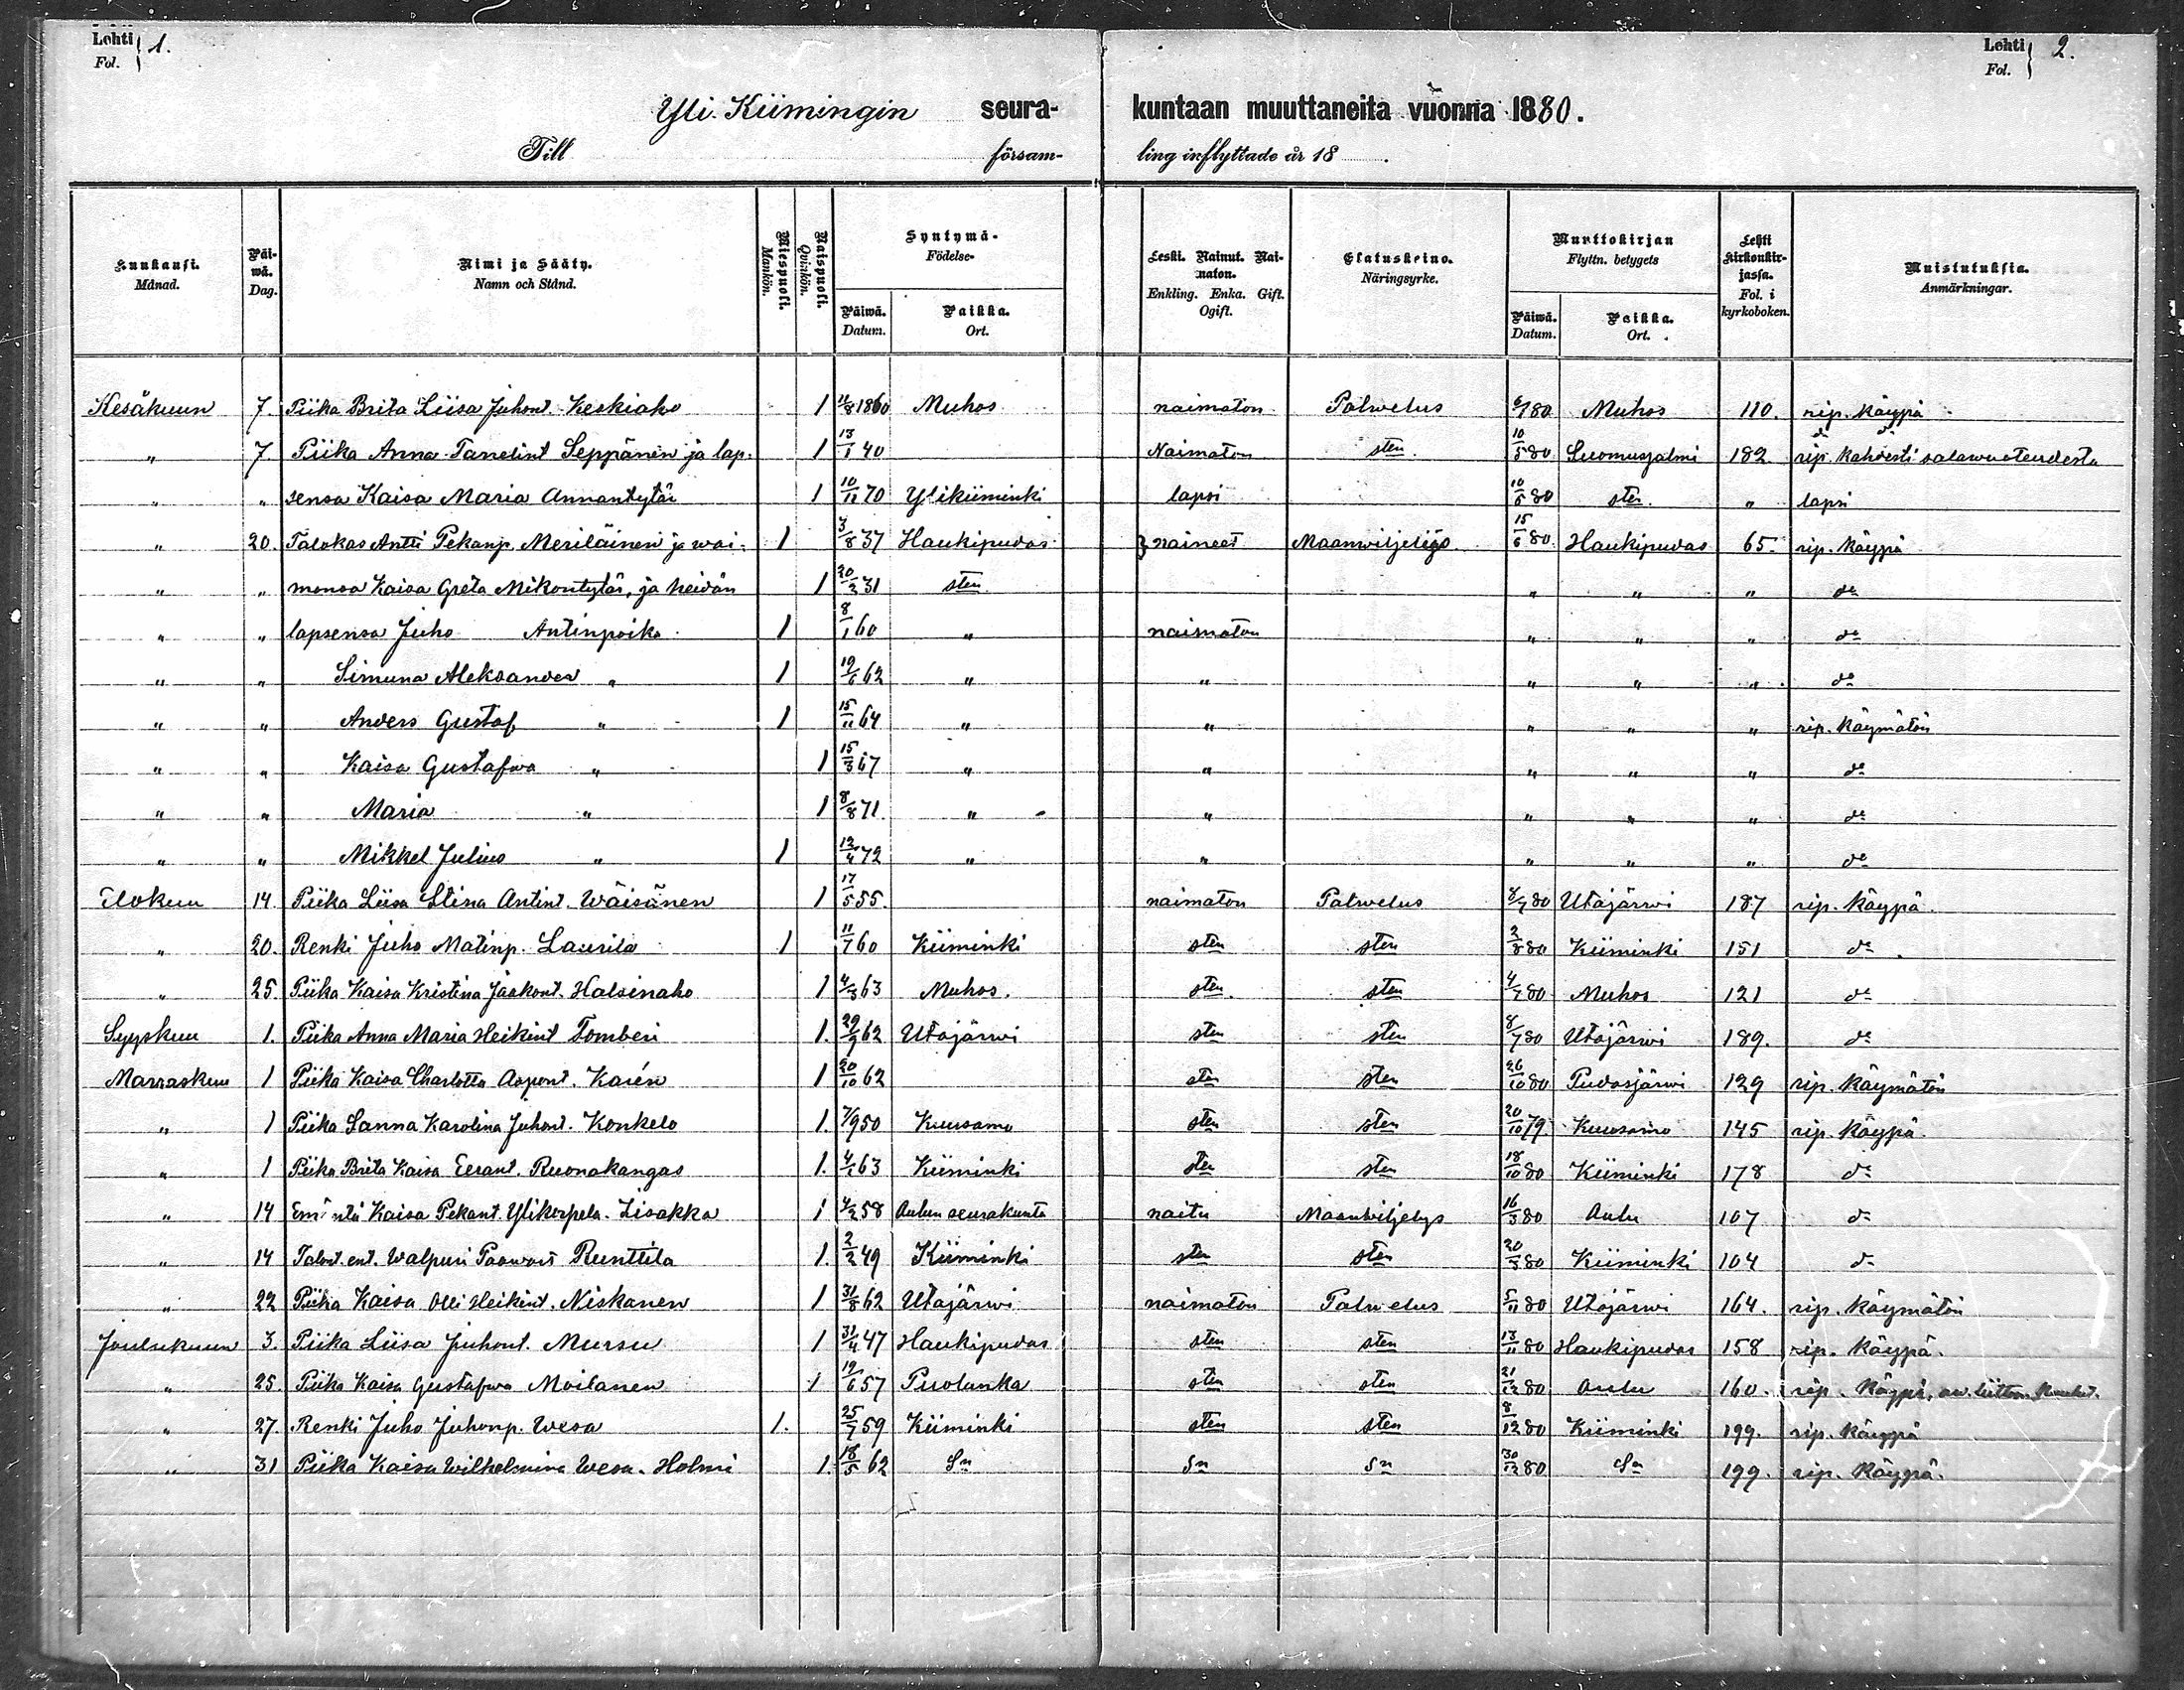 Lehti Fol. 1.
Lehti Fol. 2.
Yli-Kiimingin seura- kuntaan muuttaneita vuonna 1880.
Till försam- ling inflyttade år 18 .
Kuukausi. Månad. | Päiwä. Dag. | Nimi ja Sääty. Namn och Stånd. | Miespuoli. Mankön. | Naispuoli. Qvinkön. | Syntymä- Födelse- Päiwä. Datum. | Paikka. Ort. | Leski. Nainut. Naimaton. Enkling. Enka. Gift. Ogift. | Elatuskeino. Näringsyrke. | Muuttokirjan Flyttn. betygets Päiwä. Datum. | Paikka. Ort. | Lehti Kirkonkirjassa. Fol. i kyrkoboken. | Muistutuksia. Anmärkningar.
Kesäkuun 7. Piika Brita Liisa Juhont. Keskiaho 1 11/8 1860 Muhos naimaton Palwelus 6/ 80 Muhos 110. rip. käypä
" 7. Piika Anna Tanelint Seppänen ja lap- 1 13/1 40 Naimaton sten 10/5 80 Suomusjalmi 182. rip. kahdesti salawuoteudesta
" " sensa Kaisa Maria Annantytär 1 10/11 70 Ylikiiminki lapsi 10/5 80 sten " lapsi
" 20. Talokas Antti Pekanp. Meriläinen ja wai- 1 3/8 37 Haukipudas } naineet Maanwiljeliäs 15/6 80 Haukipudas 65. rip. käypä
" " monsa Kaisa Greta Mikontytär, ja heidän 1 20/2 31 sten " " " do
" " lapsensa Juho Antinpoika 1 8/1 60 " naimaton " " " do
" " Simuna Aleksander " 1 19/6 62 " " " " " do
" " Anders Gustaf " 1 15/11 64 " " " " " rip. käymätön
" " Kaisa Gustafwa " 1 15/3 67 " " " " " do
" " Maria " 1 8/8 71. " " " " " do
" " Mikkel Julius " 1 12/4 72 " " " " " do
Elokuu 14. Piika Liisa Stina Antint. Wäisänen 1 17/5 55. naimaton Palwelus 8/7 80 Utajärwi 187 rip. käypä.
" 20. Renki Juho Matinp. Laurila 1 11/7 60 Kiiminki sten sten 2/8 80 Kiiminki 151 do
" 25. Piika Kaisa Kristina Jaakont. Halsinaho 1 4/3 63 Muhos. sten sten 4/7 80 Muhos 121 do
Syyskuu 1. Piika Anna Maria Heikint Tomberi 1. 29/9 62 Utajärwi sten sten 8/7 80 Utajärwi 189. do
Marraskuu 1 Piika Kaisa Charlotta Aapont. Karén 1 20/10 62 sten sten 26/10 80 Pudasjärwi 129 rip. käymätön
" 1 Piika Sanna Karolina Juhont. Konkelo 1. 7/9 50 Kuusamo sten sten 20/10 79 Kuusamo 145 rip. käypä.
" 1 Piika Brita Kaisa Eerant. Ruonakangas 1. 4/1 63 Kiiminki sten sten 18/10 80 Kiiminki 178 do
" 14 Emäntä Kaisa Pekant. Ylikerpela. Lisakka 1 4/2 58 Oulun seurakunta naitu Maanwiljelys 16/3 80 Oulu 107 do
" 14 Walpuri Runttila 1. 2/2 49 Kiiminki sten sten 20/3 80 Kiiminki 104 do
" 22 Piika Kaisa Olli Heikint. Niskanen 1 31/8 62 Utajärwi naimaton Palwelus 5/11 80 Utajärwi 164. rip. käymätön
Joulukuun 3. Piika Liisa Juhont. Mursu 1 31/4 47 Haukipudas sten sten 13/11 80 Haukipudas 158 rip. käypä.
" 25 Piika Kaisa Gustafwa Moilanen 1 19/6 57 Puolanka sten sten 21/12 80 Oulu 160. rip. käypä, aw. liittoon
" 27. Renki Juho Juhonp. Wesa 1. 25/7 59 Kiiminki sten sten 8/12 80 Kiiminki 199. rip. käypä
" 31 Piika Kaisa Wilhelmina Wesa-Holmi 1. 18/5 62 Sn Sn Sn 30/12 80 Sn 199. rip. käypä.